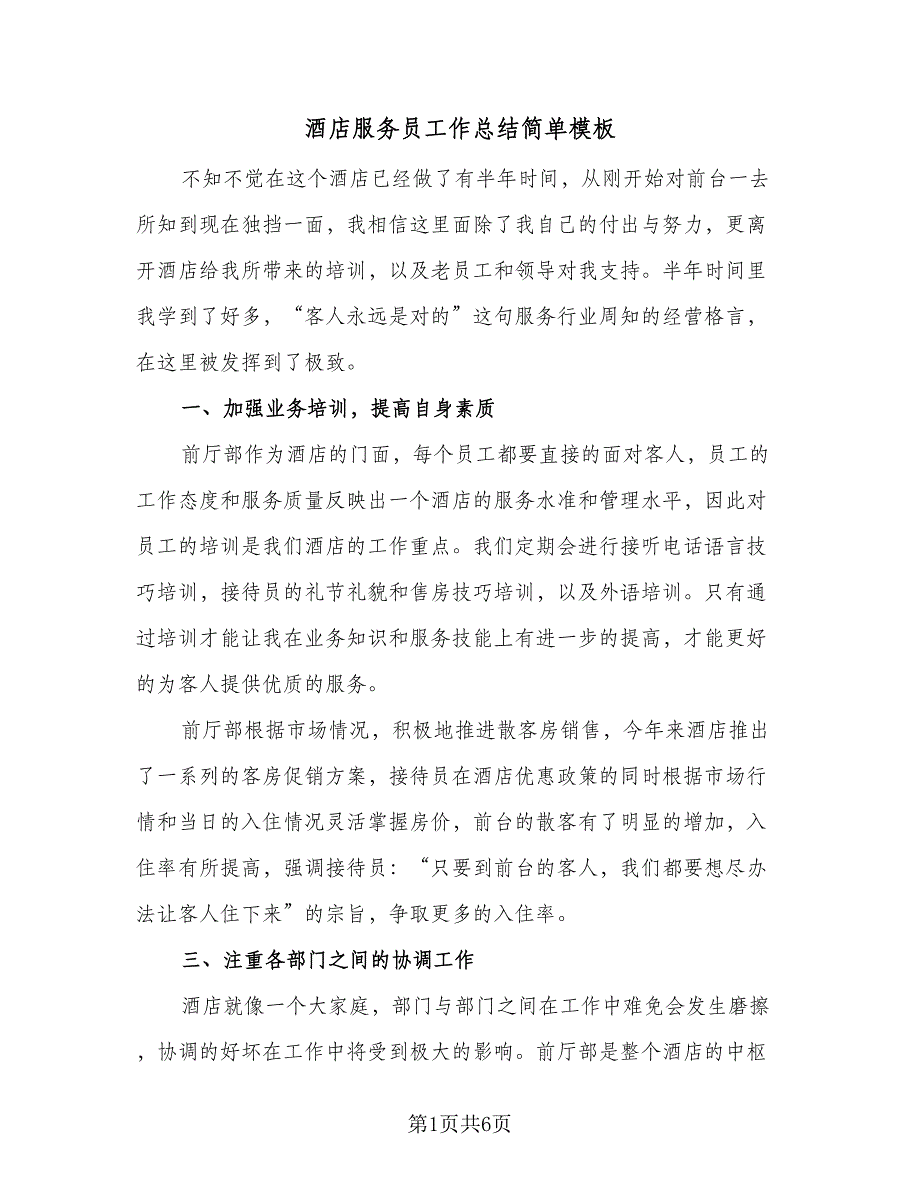 酒店服务员工作总结简单模板
不知不觉在这个酒店已经做了有半年时间，从刚开始对前台一去
所知到现在独挡一面，我相信这里面除了我自己的付出与努力，更离
开酒店给我所带来的培训，以及老员工和领导对我支持。半年时间里
我学到了好多，“客人永远是对的”这句服务行业周知的经营格言，
在这里被发挥到了极致。
一、加强业务培训，提高自身素质
前厅部作为酒店的门面，每个员工都要直接的面对客人，员工的
工作态度和服务质量反映出一个酒店的服务水准和管理水平，因此对
员工的培训是我们酒店的工作重点。我们定期会进行接听电话语言技
巧培训，接待员的礼节礼貌和售房技巧培训，以及外语培训。只有通
过培训才能让我在业务知识和服务技能上有进一步的提高，才能更好
的为客人提供优质的服务。
前厅部根据市场情况，积极地推进散客房销售，今年来酒店推出
了一系列的客房促销方案，接待员在酒店优惠政策的同时根据市场行
情和当日的入住情况灵活掌握房价，前台的散客有了明显的增加，入
住率有所提高，强调接待员：“只要到前台的客人，我们都要想尽办
法让客人住下来”的宗旨，争取更多的入住率。
三、注重各部门之间的协调工作
酒店就像一个大家庭，部门与部门之间在工作中难免会发生磨擦
，协调的好坏在工作中将受到极大的影响。前厅部是整个酒店的中枢
第1页共6页